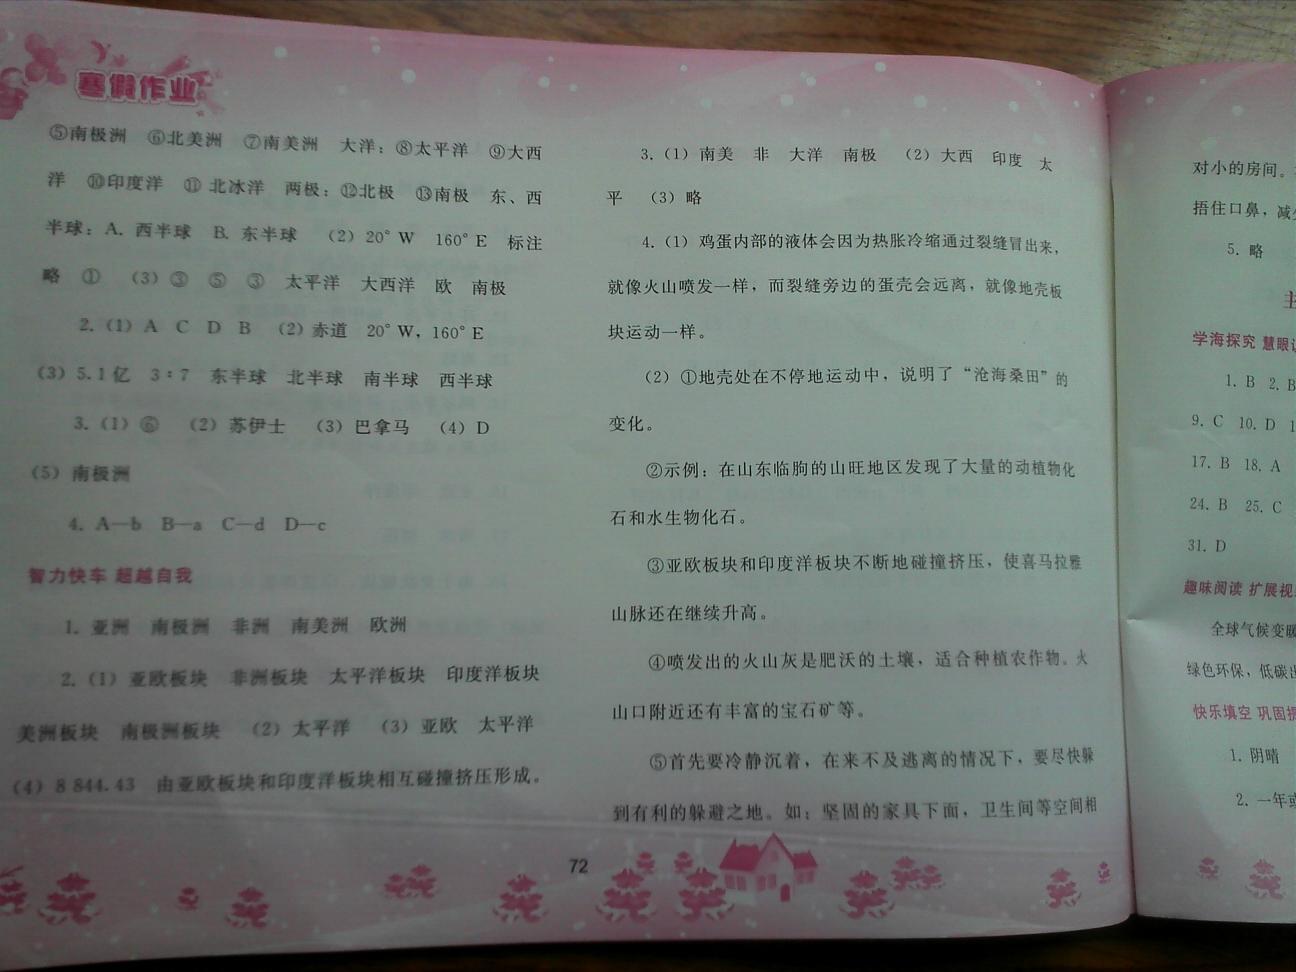 寒假作业
⑤南极洲 ⑥北美洲 ⑦南美洲 大洋：⑧太平洋 ⑨大西
洋 ⑩印度洋 ⑪北冰洋 两极：⑫北极 ⑬南极 东、西
半球：A. 西半球 B. 东半球 （2）20°W 160°E 标注
略 ① （3）③ ⑤ ③ 太平洋 大西洋 欧 南极
2.（1）A C D B （2）赤道 20°W，160°E
（3）5.1亿 3∶7 东半球 北半球 南半球 西半球
3.（1）⑥ （2）苏伊士 （3）巴拿马 （4）D
（5）南极洲
4. A—b B—a C—d D—c
智力快车 超越自我
1. 亚洲 南极洲 非洲 南美洲 欧洲
2.（1）亚欧板块 非洲板块 太平洋板块 印度洋板块
美洲板块 南极洲板块 （2）太平洋 （3）亚欧 太平洋
（4）8 844.43 由亚欧板块和印度洋板块相互碰撞挤压形成。
3.（1）南美 非 大洋 南极 （2）大西 印度 太
平 （3）略
4.（1）鸡蛋内部的液体会因为热胀冷缩通过裂缝冒出来，
就像火山喷发一样，而裂缝旁边的蛋壳会远离，就像地壳板
块运动一样。
（2）①地壳处在不停地运动中，说明了“沧海桑田”的
变化。
②示例：在山东临朐的山旺地区发现了大量的动植物化
石和水生物化石。
③亚欧板块和印度洋板块不断地碰撞挤压，使喜马拉雅
山脉还在继续升高。
④喷发出的火山灰是肥沃的土壤，适合种植农作物。火
山口附近还有丰富的宝石矿等。
⑤首先要冷静沉着，在来不及逃离的情况下，要尽快躲
到有利的躲避之地。如：坚固的家具下面，卫生间等空间相
72
对小的房间。
捂住口鼻，减
5. 略
学海探究 慧眼
1. B 2. B
9. C 10. D 1
17. B 18. A
24. B 25. C
31. D
趣味阅读 扩展视
全球气候变暖
绿色环保，低碳
快乐填空 巩固
1. 阴晴
2. 一年或